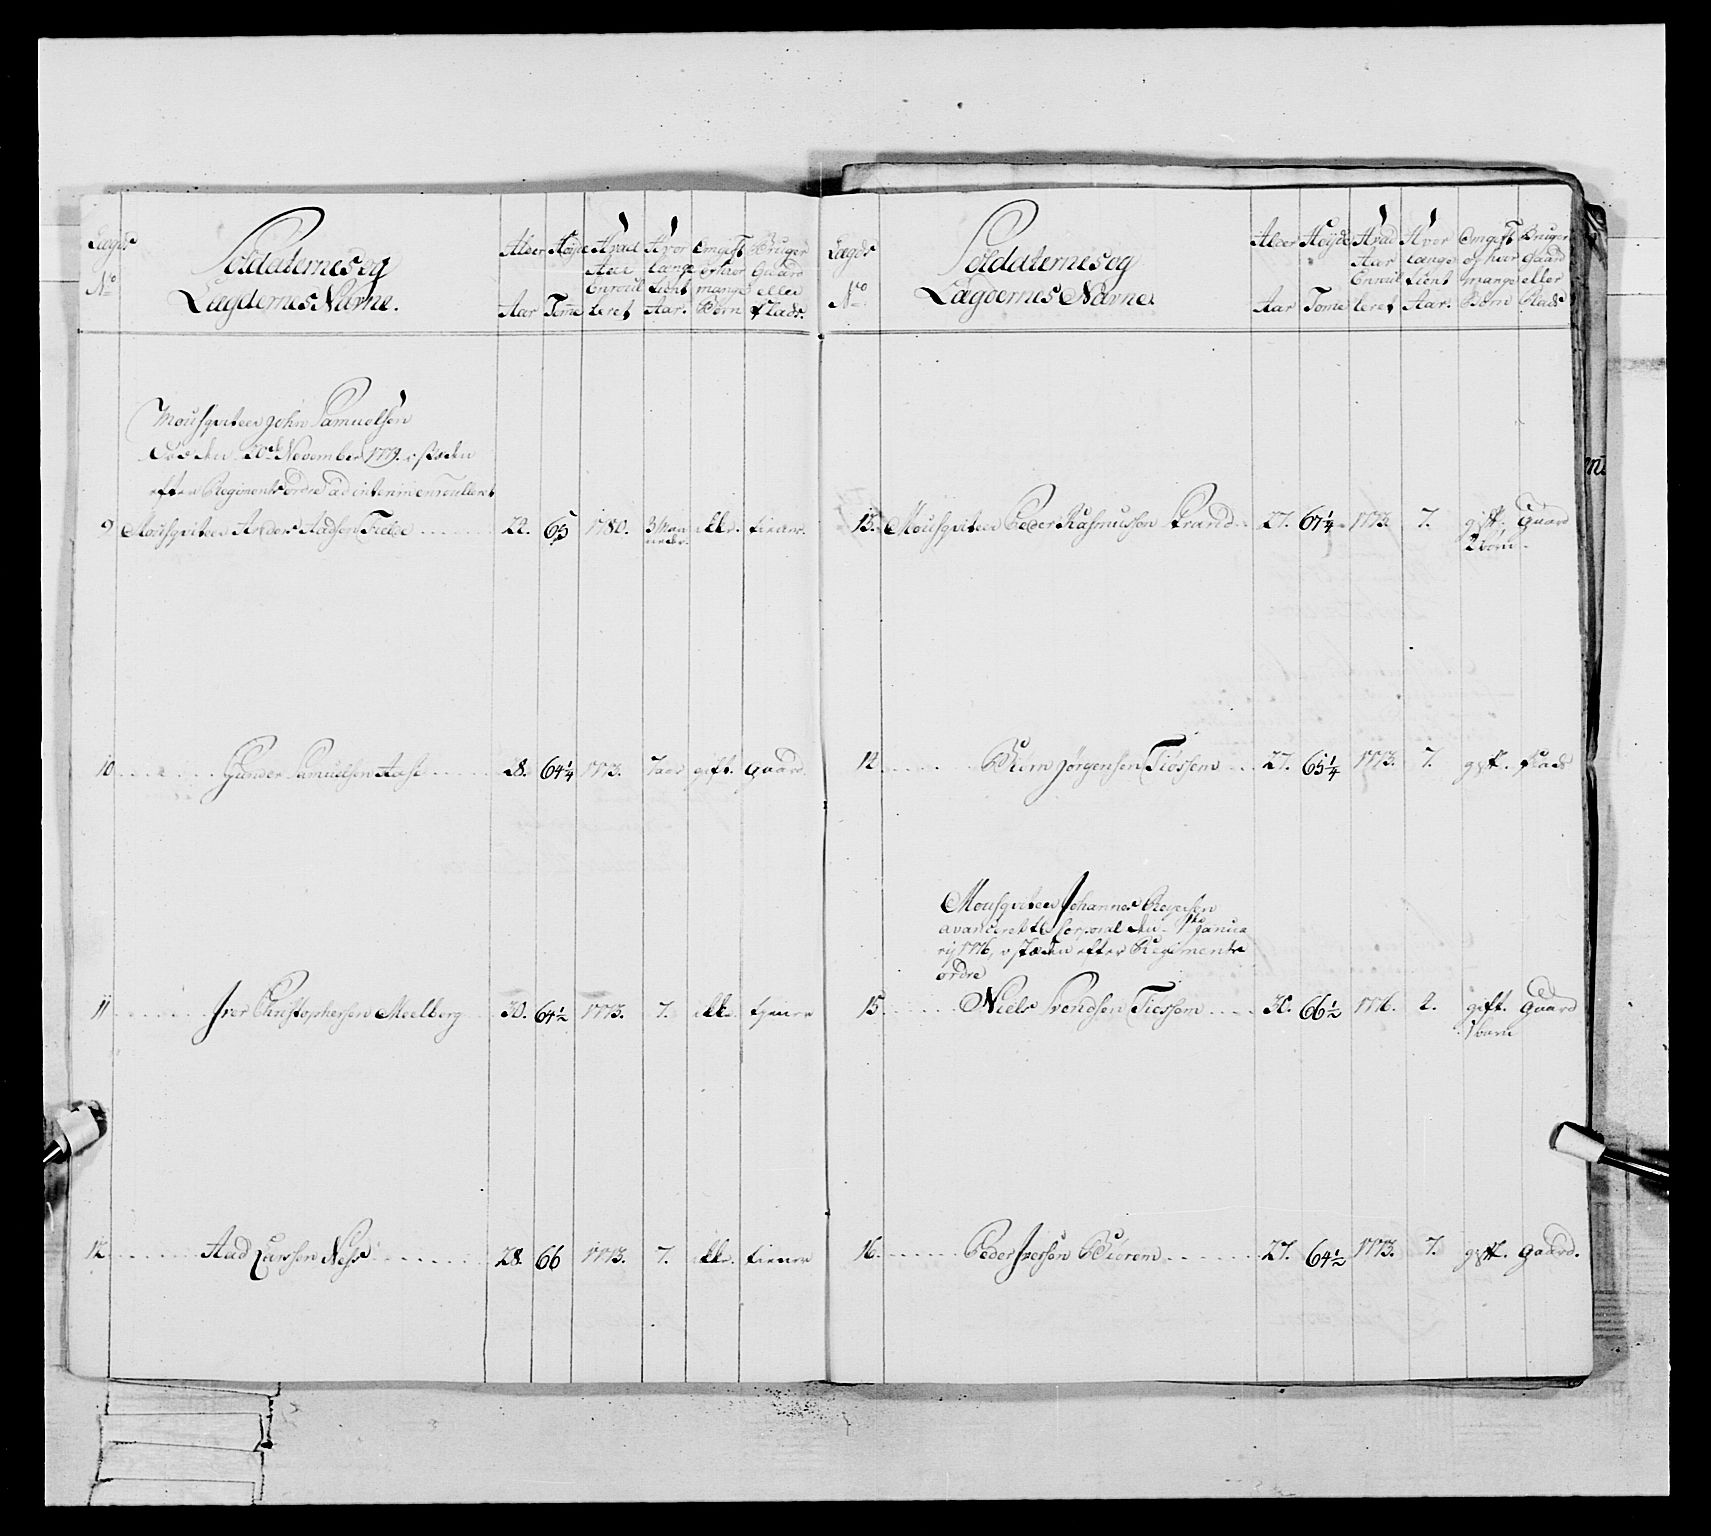 Lægds No
Soldaternes og Lægdernes Navne.
Alder Aar
Høyde Tome
Hvad Aar Enroulleret
Hvor længe tient Aar.
Om gift og hvor mange Børn
Bruger Gaard eller Plads.
Mousqviteer John Samuelsen
Død den 20de November 1779. i stæden
efter Regiments ordre ad interim enroulleret
9 Mousqviteer Anders Aadsen 22. 65 1780. 3 Maaneder. ikke. tiener.
10. Gunder Samuelsen Aase 28. 64 1/4 1773. 7 aar gift. gaard.
11 Iver Christophersen Meelberg 30. 64 1/2 1773. 7. ikke. tjener
12. Aad Larssen Ness 28. 66 1773. 7. ikke. tiener
Lægds No
Soldaternes og Lægdernes Navne.
Alder Aar
Høyde Tome
Hvad Aar Enroulleret
Hvor længe tient Aar.
Om gift og hvor mange Børn
Bruger Gaard eller Plads
13. Mousqviteer Peder Rasmussen Strand 27. 67 1/4 1773. 7. gift. Gaard
2 børn.
14 Biørn Jørgensen Tiøssem 27. 65 1/4 1773. 7. gift. plads
Mousqviteer Johannes
avanceret til Corporal den 1te Janua
rij 1776, i stæden efter Regiments
ordre
15 Niels Svendsen Tiøssem 30. 66 1/2 1776. 2. gift. Gaard
1 barn
16. Peder Iversen 27. 64 1/2 1773. 7. gift. gaard.